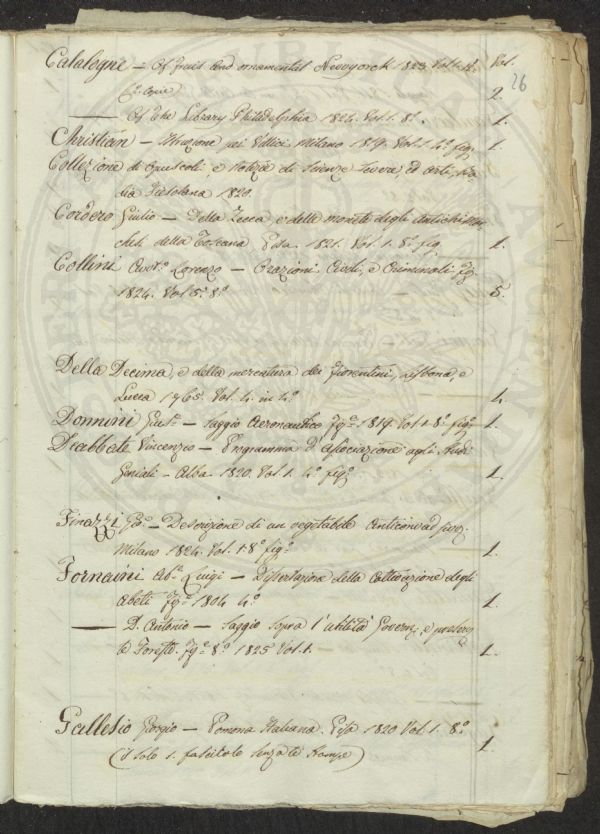 Catalogue – Of fruit and ornamental Newyorck 1823. Vol. 1. 12. Vol.
26
(2. copie) 2.
—— Of the Library Philadelphia 1824. Vol. 1. 8.° 1.
Christian – Istruzione pei Vittici Milano 1819. Vol. 1. 4.° fig. 1.
Collezione di Opuscoli, e notizie di Scienze, Lettere, ed Arti,
dia Fiesolana 1820.
Cordero Giulio – Della Zecca e della moneta degli antichi Mar-
chesi della Toscana. Pisa. 1821. Vol. 1. 8.° fig. 1.
Collini Avv.° Lorenzo – Orazioni Civili, e Criminali
1824. Vol. 5. 8.° 5.
Della Decima, e della mercatura dei fiorentini, Lisbona, e
Lucca 1765. Vol. 4. in 4.° 4.
Donnini – Saggio Aeronautico 1819. Vol. 1. 8.° fig.° 1.
Deabbate Vincenzio – Programma d'Associazione agli Studi
Geniali – Alba. 1820. Vol. 1. 4.° fig.° 1.
Finazzi Gio.° – Descrizione di un vegetabile
Milano 1824. Vol. 1. 8.° fig.° 1.
Fornaini Ab.° Luigi – Dissertazione della Coltivazione degli
Abeti 1804 4.° 1.
—— D. Antonio – Saggio sopra l'utilità
Foreste. 8.° 1825 Vol. 1. 1.
Gallesio Giorgio – Pomona Italiana. Pisa 1820 Vol. 1. 8.°
(il solo 1. fascicolo senza le Stampe) 1.